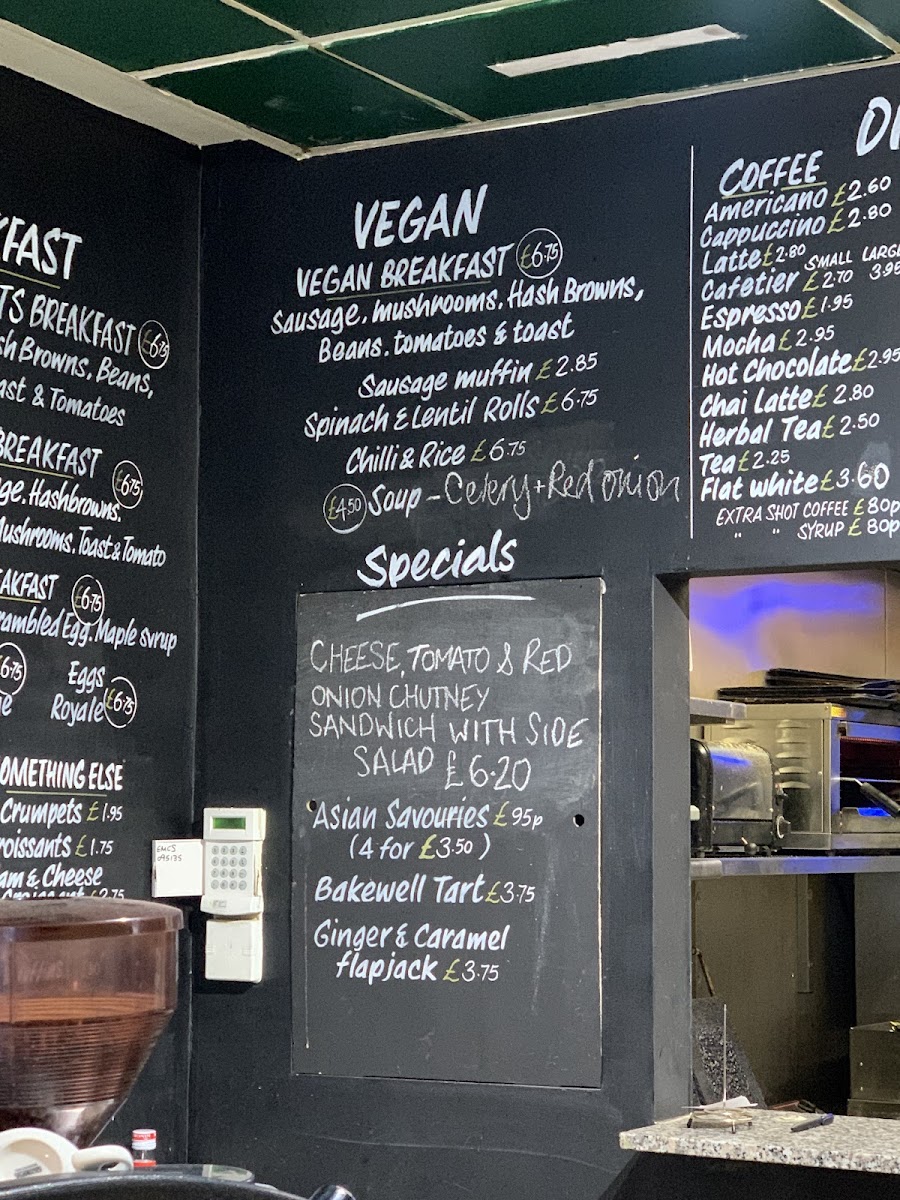 TS BREAKFAST £6.75
Hash Browns, Beans,
& Tomatoes
BREAKFAST £6.75
Hashbrowns.
Mushrooms. Toast & Tomato
£6.75
Egg. Maple syrup
£6.75 Eggs
Royale £6.75
SOMETHING ELSE
Crumpets £1.95
Croissants £1.75
& Cheese
VEGAN
VEGAN BREAKFAST £6.75
Sausage, mushrooms. Hash Browns,
Beans. tomatoes & toast
Sausage muffin £2.85
Spinach & Lentil Rolls £6.75
Chilli & Rice £6.75
£4.50 Soup - Celery + Red onion
Specials
CHEESE, TOMATO & RED
ONION CHUTNEY
SANDWICH WITH SIDE
SALAD £6.20
Asian Savouries £95p
(4 for £3.50)
Bakewell Tart £3.75
Ginger & Caramel
flapjack £3.75
COFFEE
Americano £2.60
Cappuccino £2.80
Latte £2.80
SMALL LARGE
Cafetier £2.70 3.95
Espresso £1.95
Mocha £2.95
Hot Chocolate £2.95
Chai Latte £2.80
Herbal Tea £2.50
Tea £2.25
Flat white £3.60
EXTRA SHOT COFFEE £80p
" " SYRUP £80p